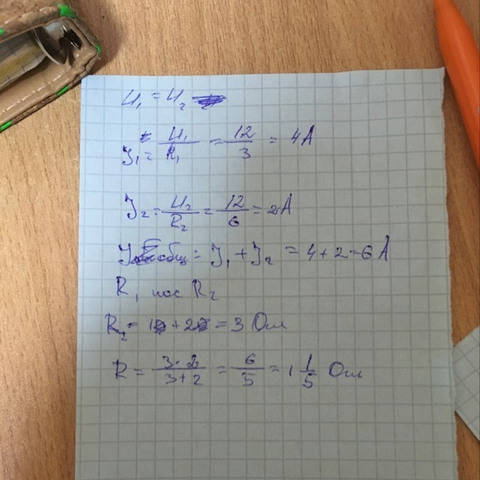 U₁ = U₂
J₁ = U₁/R₁ = 12/3 = 4A
J₂ = U₂/R₂ = 12/6 = 2A
Jобщ = J₁ + J₂ = 4 + 2 = 6 A
R₁ пос R₂
R₂ = 1 + 2 = 3 Ом
R = 3·2/3+2 = 6/5 = 1 1/5 Ом